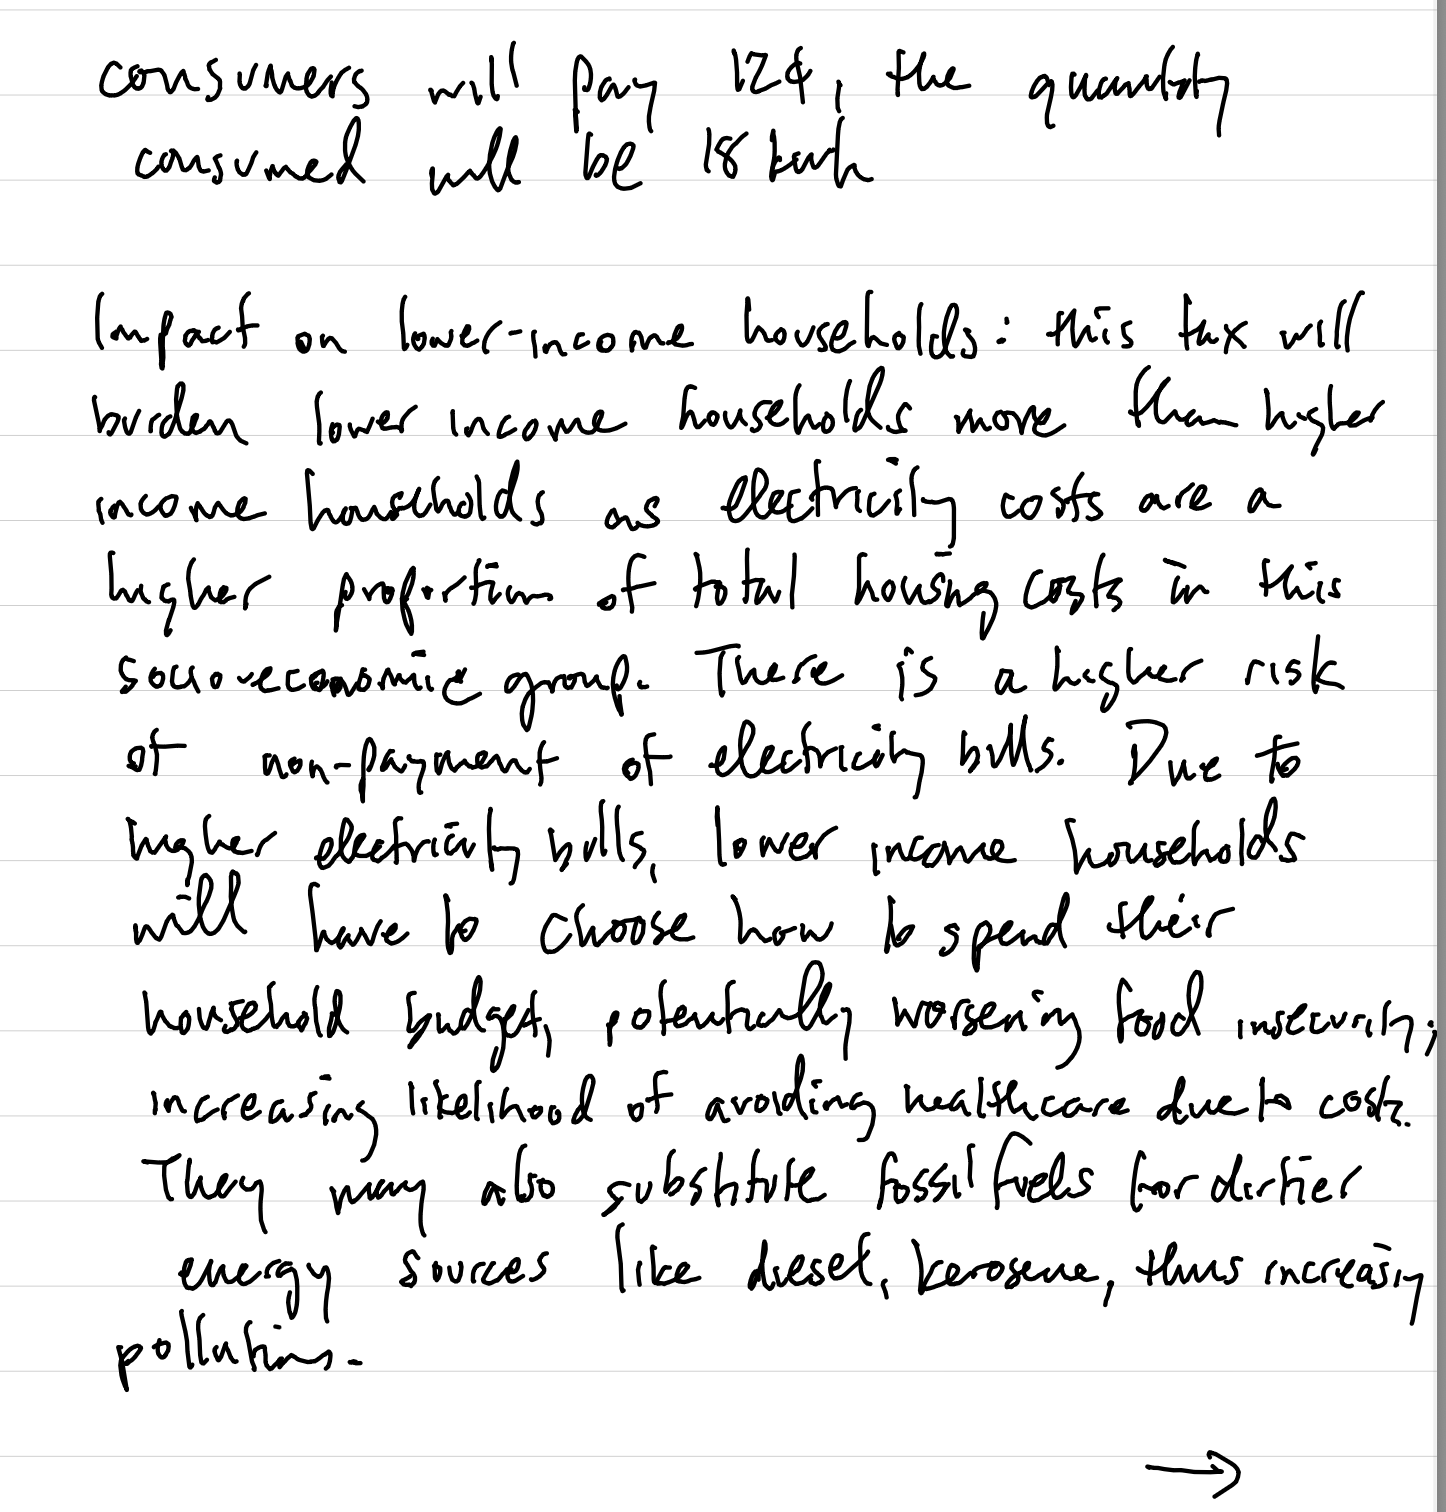 consumers will pay 12¢, the quantity
consumed will be 18 kwh
Impact on lower-income households: this tax will
burden lower income households more than higher
income households as electricity costs are a
higher proportion of total housing costs in this
socio-economic group. There is a higher risk
of non-payment of electricity bills. Due to
higher electricity bills, lower income households
will have to choose how to spend their
household budget, potentially worsening food insecurity,
increasing likelihood of avoiding healthcare due to costs.
They may also substitute fossil fuels for dirtier
energy sources like diesel, kerosene, thus increasing
pollution.
→